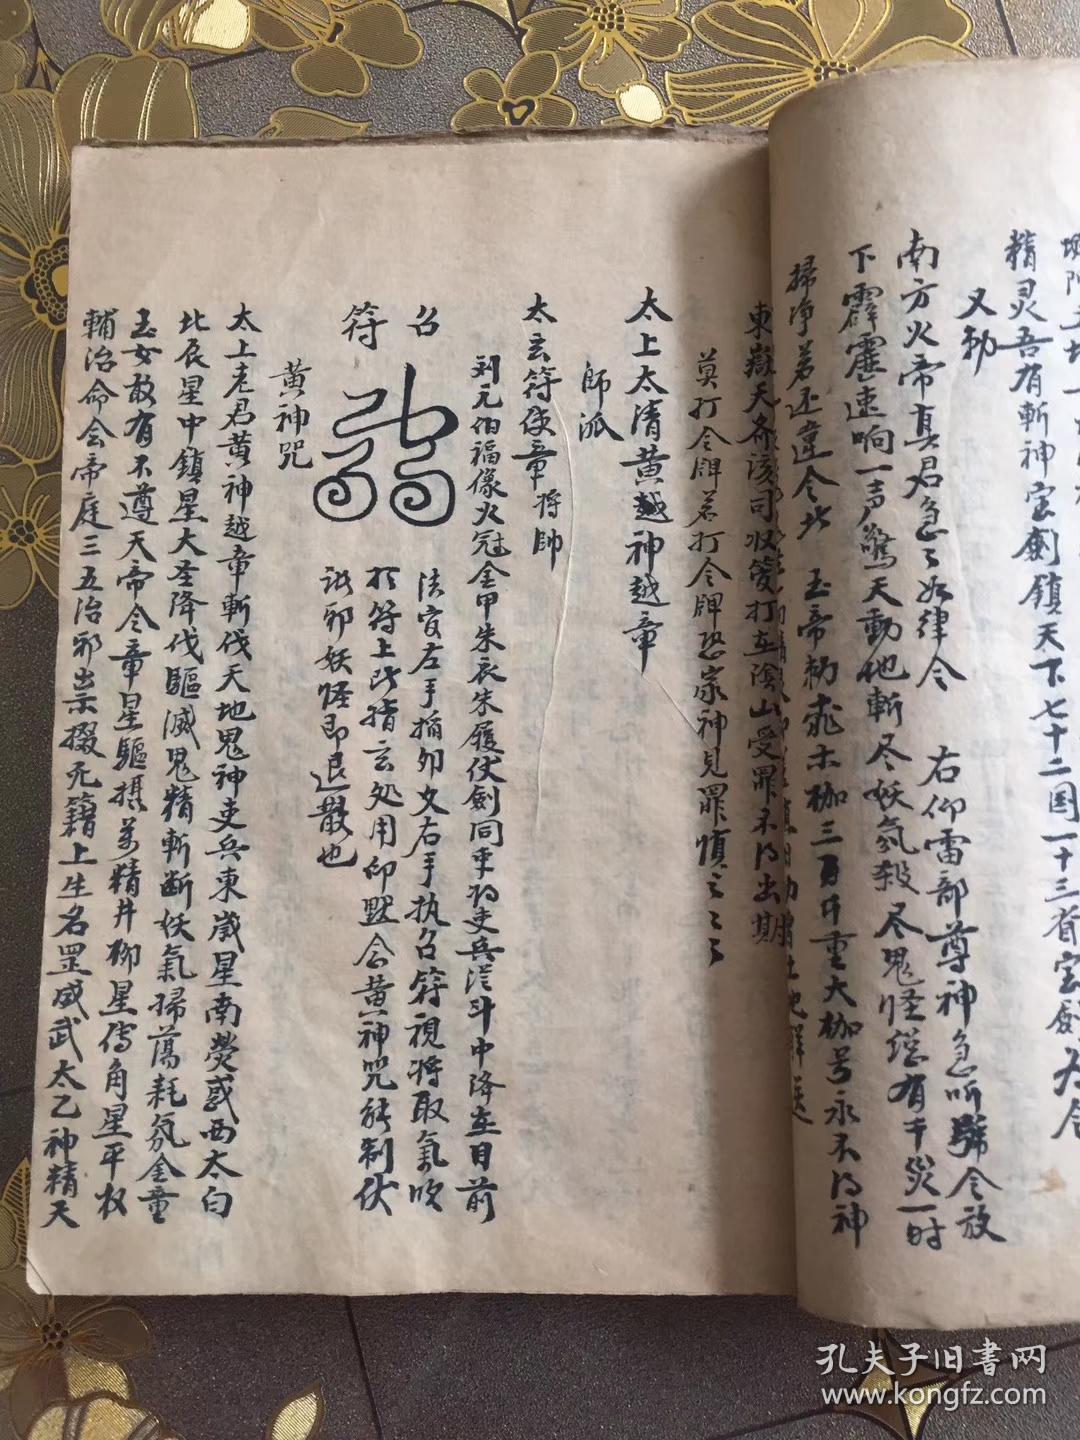 精灵吾有斬神宝劍鎮天下七十二国一十三省宝劍
又勅
南方火帝真君急々如律令 右仰雷部尊神急听號令放
下霹靂速响一声驚天動地斬尽妖氛殺尽鬼怪 有干災一时
掃净若还違令 玉帝勅 木枷三 斤重大枷号永不得神
東嶽天齐 司收管打在陰山受罪不得出期
莫打令牌若打令牌恐家神見罪慎之之之
太上太清黄越神越章
師派
太玄符使章将帥
刘元伯福像火冠金甲朱衣朱履仗劍同 吏兵从斗中降在目前
召符
法官左手掐卯文右手执召符视将取氣吹
于符上 指云处用印默念黄神咒能制伏
诸邪妖怪即退散也
黄神咒
太上老君黄神越章斬伐天地鬼神吏兵東嵗星南熒惑西太白
北辰星中鎮星大圣降伐驅滅鬼精斬断妖氣掃蕩耗氛金童
玉女敢有不遵天帝令章星驅摄万精井柳星 角星平权
輔治命会帝庭三五治邪祟掇死籍上生名罡威武太乙神精天
孔夫子旧書网
www.kongfz.com